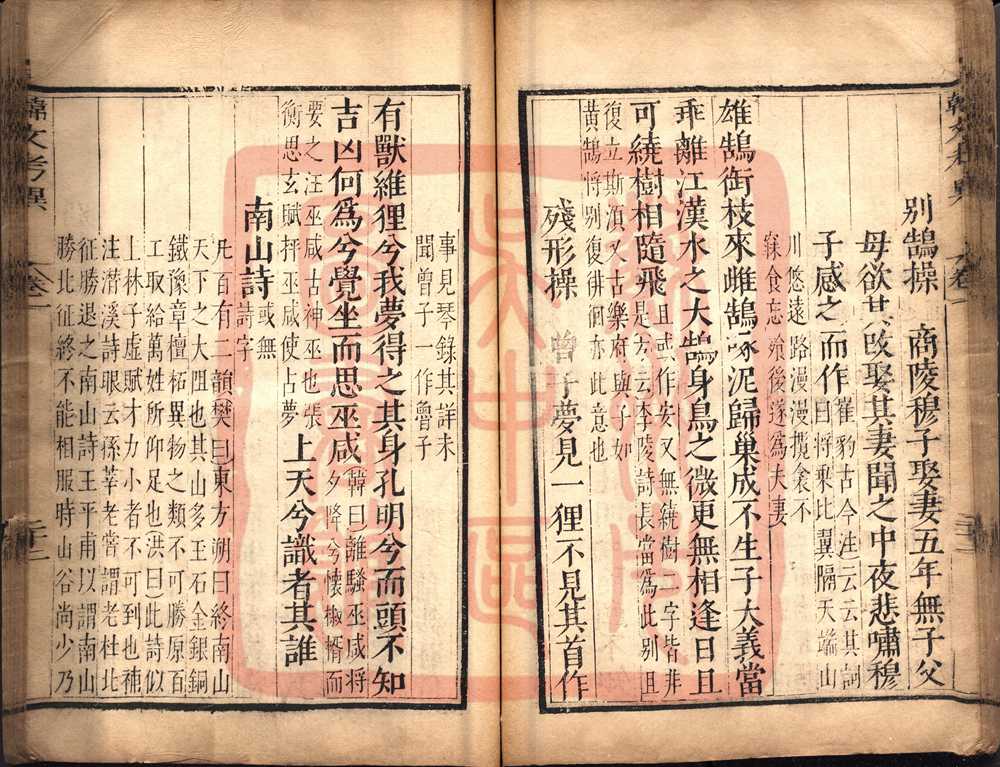 韓文考異
卷一
別鵠操
商陵穆子娶妻五年無子父
母欲其改娶其妻聞之中夜悲嘯穆
子感之而作
崔豹古今注云云其詞
曰將乘比翼隔天端山
川悠遠路漫漫攬衾不
寐食忘飱後遂爲夫妻
雄鵠銜枝來雌鵠啄泥歸巢成不生子大義當
乖離江漢水之大鵠身鳥之微更無相逢日且
可繞樹相隨飛
且或作安又無繞樹二字皆非
是方云李陵詩長當爲此別且
復立斯須又古樂府與子如
黃鵠將別復徘徊亦此意也
殘形操
曾子夢見一狸不見其首作
事見琴錄其詳未
聞曾子一作魯子
有獸維狸兮我夢得之其身孔明兮而頭不知
吉凶何爲兮覺坐而思巫咸
韓曰離騷巫咸將
夕降兮懷椒糈而
要之汪巫咸古神巫也張
衡思玄賦抨巫咸使占夢
上天兮識者其誰
南山詩
或無
詩字
凡百有二韻樊曰東方朔曰終南山
天下之大阻也其山多玉石金銀銅
鐵豫章檀柘異物之類不可勝原百
工取給萬姓所仰足也洪曰此詩似
上林子虛賦才力小者不可到也補
注潛溪詩眼云孫莘老嘗謂老杜北
征勝退之南山詩王平甫以謂南山
勝北征終不能相服時山谷尚少乃
韓文考異
卷一